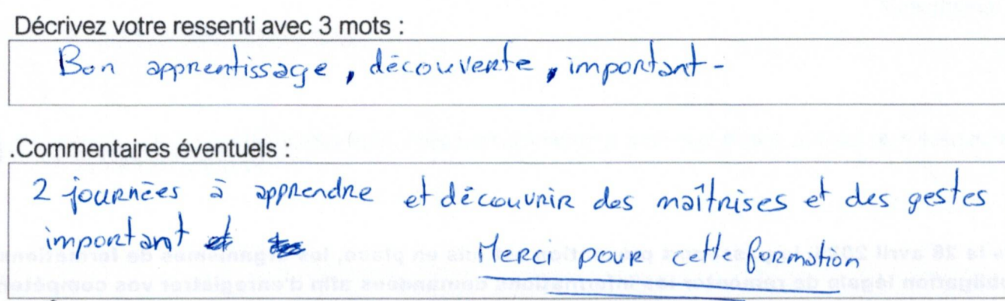 Décrivez votre ressenti avec 3 mots :
Bon apprentissage, découverte, important -
.Commentaires éventuels :
2 journées à apprendre et découvrir des maîtrises et des gestes
important et
Merci pour cette formation